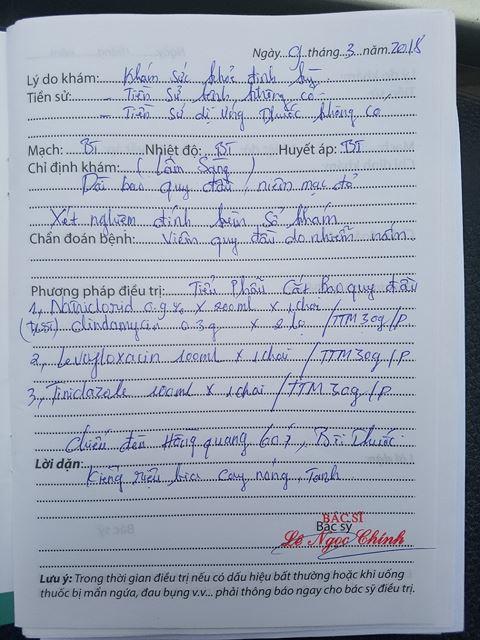 Ngày 9 tháng 3 năm 2018
Lý do khám: Khám sức khỏe định kỳ
Tiền sử: - Tiền sử bệnh không có
- Tiền sử dị ứng thuốc không có
Mạch: BT Nhiệt độ: BT Huyết áp: BT
Chỉ định khám: (Lâm Sàng)
Dài bao quy đầu, niêm mạc đỏ
Xét nghiệm định
Chẩn đoán bệnh: Viêm quy đầu do nhiễm nấm
Phương pháp điều trị: Tiểu Phẫu Cắt Bao quy đầu
1, Natriclorid 0.9% x 200ml x 1 chai
Clindamycin 0.3g x 2 lọ /TTM 30g/p
2, Levofloxacin 100ml x 1 chai /TTM 30g/p
3, Tinidazole 100ml x 1 chai /TTM 30g/p
Chiếu đèn Hồng quang 60', Bôi Thuốc
Lời dặn:
Kiêng rượu bia cay nóng, Tanh
BÁC SĨ
Bác sỹ
Lê Ngọc Chính
Lưu ý: Trong thời gian điều trị nếu có dấu hiệu bất thường hoặc khi uống
thuốc bị mẩn ngứa, đau bụng v.v... phải thông báo ngay cho bác sỹ điều trị.